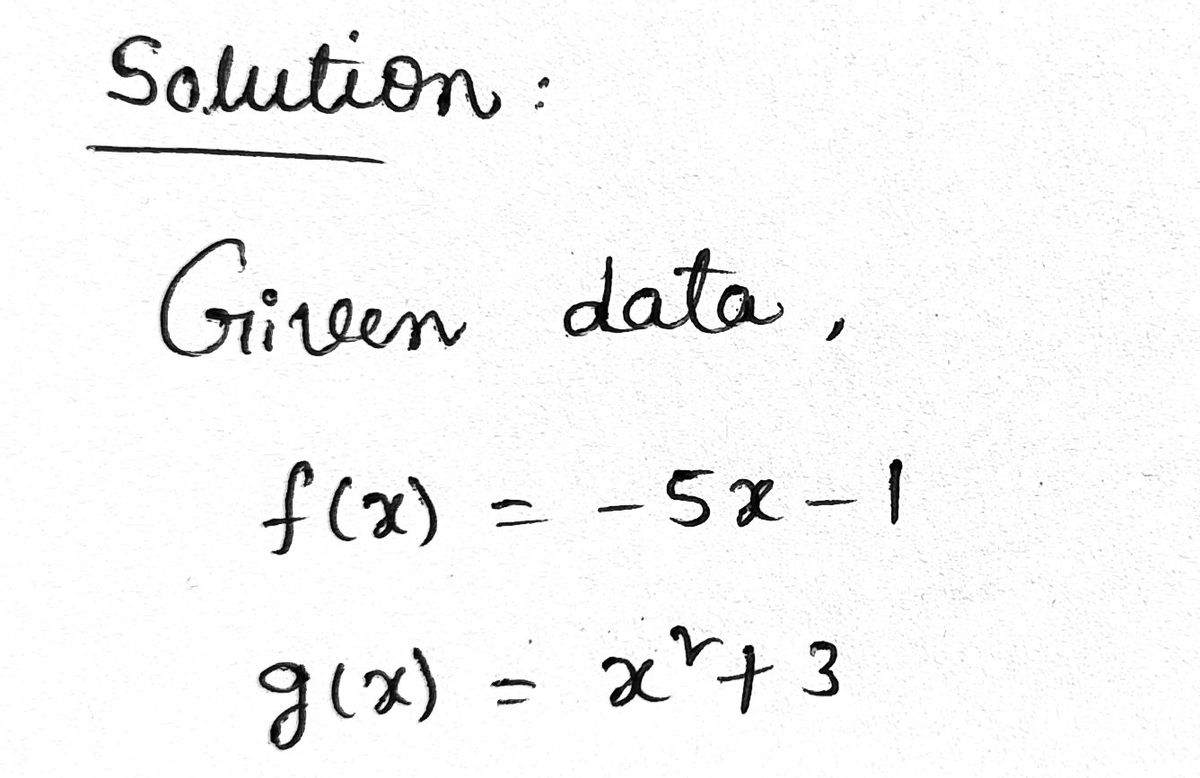 Solution:
Given data,
f(x) = -5x-1
g(x) = x²+3